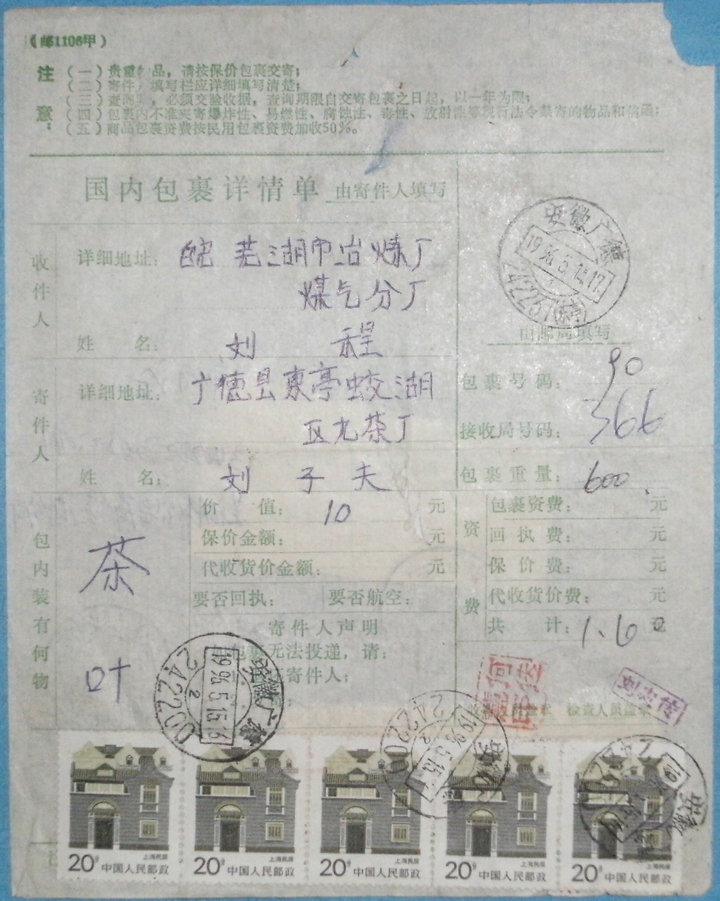 (邮1106甲)
注意：
(一)贵重 品，请按保价包裹交寄；
(二)寄件 填写栏应详细填写清楚；
(三)查询 ，必须交验收据，查询期限自交寄包裹之日起，以一年为限；
(四)包裹内不准夹寄爆炸性、易燃性、腐蚀性、毒性、放射性 法令禁寄的物品和信函；
(五)商品包裹资费按民用包裹资费加收50%。
国内包裹详情单 由寄件人填写
收件人
详细地址：皖 芜湖市冶炼厂
煤气分厂
姓 名：刘 程
寄件人
详细地址：广德县东亭蛟湖
区尤茶厂
姓 名：刘子夫
安徽广德
由邮局填写
包裹号码：90
接收局号码：366
包裹重量：600
包内装有何物
茶叶
价 值：10 元
保价金额： 元
代收货价金额： 元
要否回执： 要否航空：
寄件人声明
包裹 无法投递，请：
寄件人；
资费
包裹资费： 元
回执费： 元
保价费： 元
代收货价费： 元
共 计：1.60 元
安徽广德
1996.5.15.
242200
刘志传
20分 上海民居 中国人民邮政
20分 上海民居 中国人民邮政
20分 上海民居 中国人民邮政
20分 上海民居 中国人民邮政
20分 上海民居 中国人民邮政